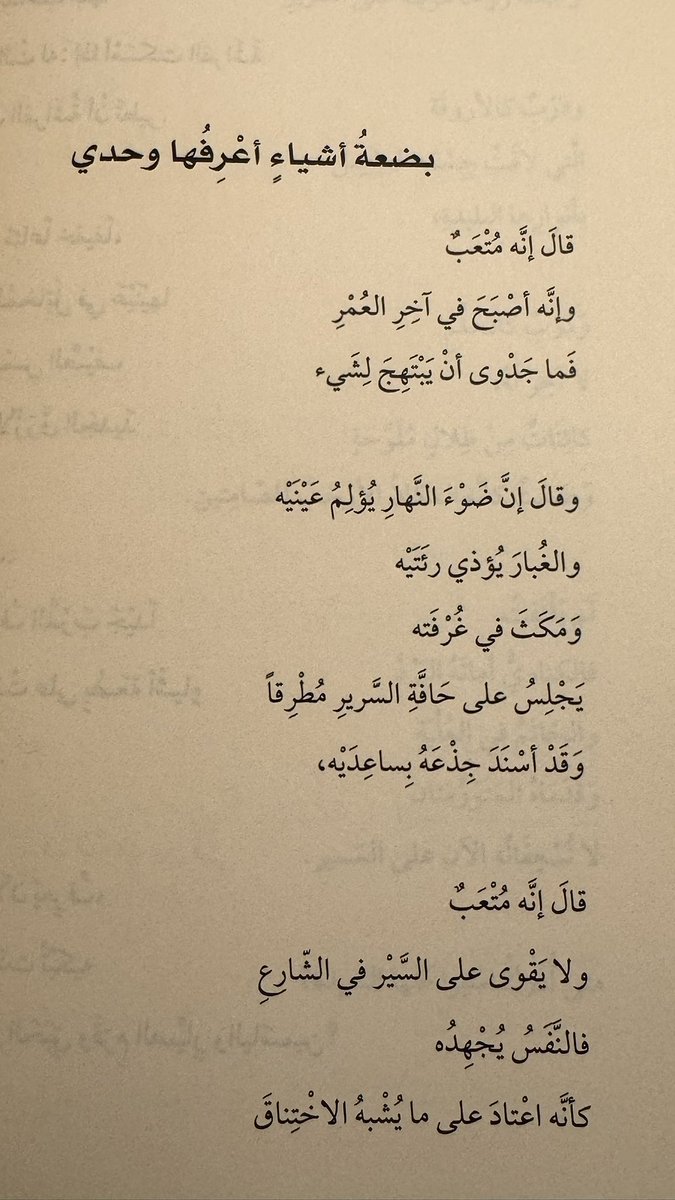 بضعةُ أشياءٍ أعْرِفُها وحدي
قالَ إنَّه مُتْعَبٌ
وإنَّه أصْبَحَ في آخِرِ العُمْرِ
فَما جَدْوى أنْ يَبْتَهِجَ لِشَيء
وقالَ إنَّ ضَوْءَ النَّهارِ يُؤلِمُ عَيْنَيْه
والغُبارَ يُؤذي رئَتَيْه
وَمَكَثَ في غُرْفَته
يَجْلِسُ على حَافَّةِ السَّريرِ مُطْرِقاً
وَقَدْ أسْنَدَ جِذْعَهُ بِساعِدَيْه،
قالَ إنَّه مُتْعَبٌ
ولا يَقْوى على السَّيْر في الشّارِعِ
فالنَّفَسُ يُجْهِدُه
كأنَّه اعْتادَ على ما يُشْبهُ الاخْتِناقَ